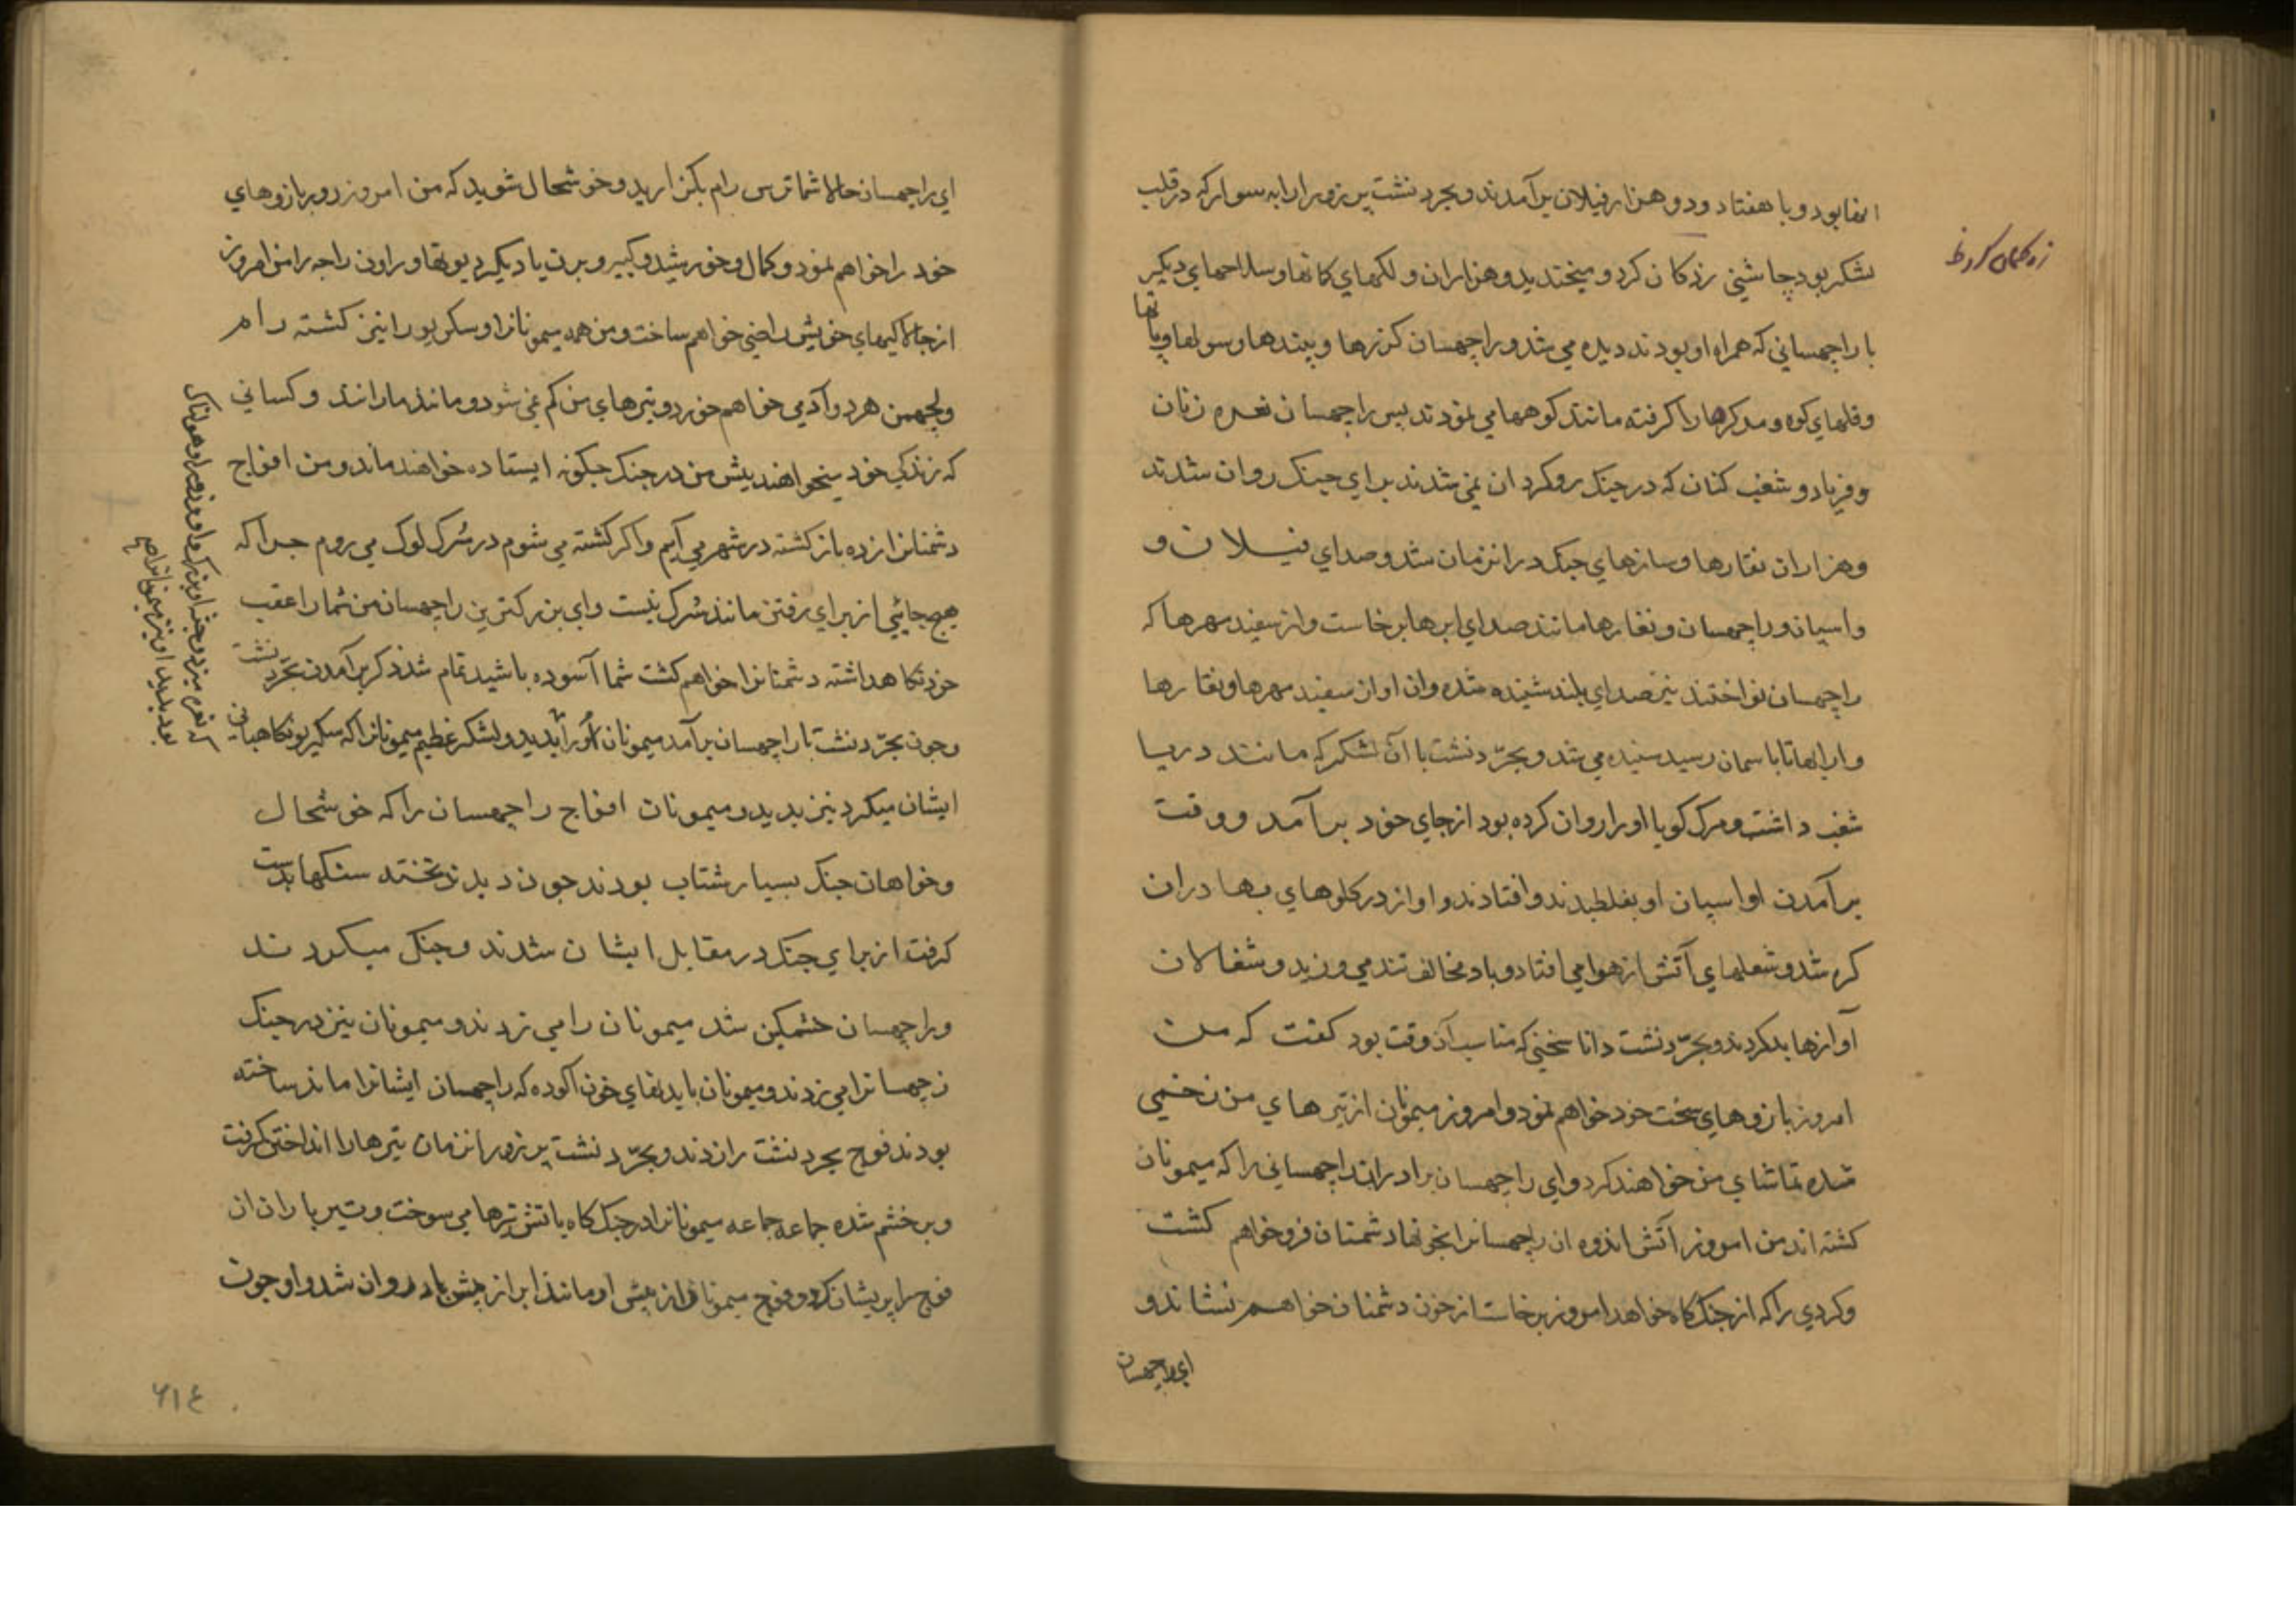 انها بود و با هفتاد و دو هزار فیلان برآمدند و بجر دنشت پر زور ارابه سوار که در قلب
لشکر بود چاشنی زه کان کرد و میخندید و هزاران و لکهای کانها و سلاحهای دیکر
با راجهسانی که همراه او بودند دیده می شد و راجهسان کرزها و پیندها و سولها و پاتها
و قلهای کوه و مدکرها را کرفته مانند کوهها می نمودند پس راجهسان نعره زنان
و فریاد و شغب کنان که در جنک روکردان نمی شدند برای جنک روان شدند
و هزاران نقارها و سازهای جنک دران زمان شد و صدای فیلان و
و اسپان و راجهسان و نقارها مانند صدای ابرها برخاست و از سفید مهرها که
راجهسان نواختند نیز صدای بلند شنیده شد و ان اواز سفید مهرها و نقارها
و ارابها تا باسمان رسید شنیده می شد و بجر دنشت با آن لشکر که مانند دریا
شغب داشت و مرک کویا او را روان کرده بود از جای خود برآمد و وقت
برآمدن او اسپان او بغلطیدند و افتادند و اواز در کلوهای بها دران
کره شد و شعلهای آتش از هوا می افتاد و باد مخالف تند می وزید و شغالان
آوازها بد کردند و بجر دنشت دانا سخنی که مناسب آن وقت بود کفت که من
امروز بازوهای سخت خود خواهم نمود و امروز میمونان از تیرهای من زخمی
شده تماشای من خواهند کرد و ای راجهسان برادران راجهسانی را که میمونان
کشته اند من امروز آتش اندوه ان راجهسانرا بخونها دشمنان فرو خواهم کشت
و کردی را که از جنک کاه خواهد امروز برخاست از خون دشمنان خواهم نشاند و
ای راجهسان
ای راجهسان حالا شما ترس رام بکذارید و خوشحال شوید که من امروز زور بازوهای
خود را خواهم نمود و کمال و خورشید و کبیر و برن یا دیکر دیوتها و راون راجه را من امروز
از جالاکیهای خویش راضی خواهم ساخت و من همه میمونانرا و سکریو را نیز کشته رام
و لچهمن هر دو آدمی خواهم خورد و تیرهای من کم نمی شود و مانند مارانند و کسانی
که زندکی خود میخواهند پیش من در جنک جکونه ایستاده خواهند ماند و من افواج
دشمنانرا زده باز کشته در شهر می آیم و اکر کشته می شوم در سرک لوک می روم جراکه
هیچ جائی از برای رفتن مانند سرک نیست و ای بزرکترین راجهسان من شما را عقب
خود نکاهداشته دشمنانرا خواهم کشت شما آسوده باشید تمام شد ذکر برآمدن بجر دنشت
و جون بجر دنشت با راجهسان برآمد میمونان او را بدید و لشکر عظیم میمونانرا که سکریو نکاهبانی
ایشان میکرد نیز بدید و میمونان افواج راجهسان را که خوشحال
و خواهان جنک بسیار شتاب بودند جون دیدند تخته سنکها بدست
کرفت از برای جنک در مقابل ایشان شدند و جنک میکردند
و راجهسان خشمکین شد میمونان را می زدند و میمونان نیز در جنک
رجهسانرا می زدند و میمونان بایدنهای خون آلوده که راجهسان ایشانرا مانده ساخته
بودند فوج بجر دنشت راندند و بجر دنشت پر زور ان زمان تیرها را انداختن کرفت
و بر خشم شده جماعه جماعه میمونانرا در جنک کاه باتش تیرها می سوخت و تیر باران ان
فوج را پریشان کرد و فوج میمونان از پیش او مانند ابر از پیش باد روان شد و او جون
۶۱۴